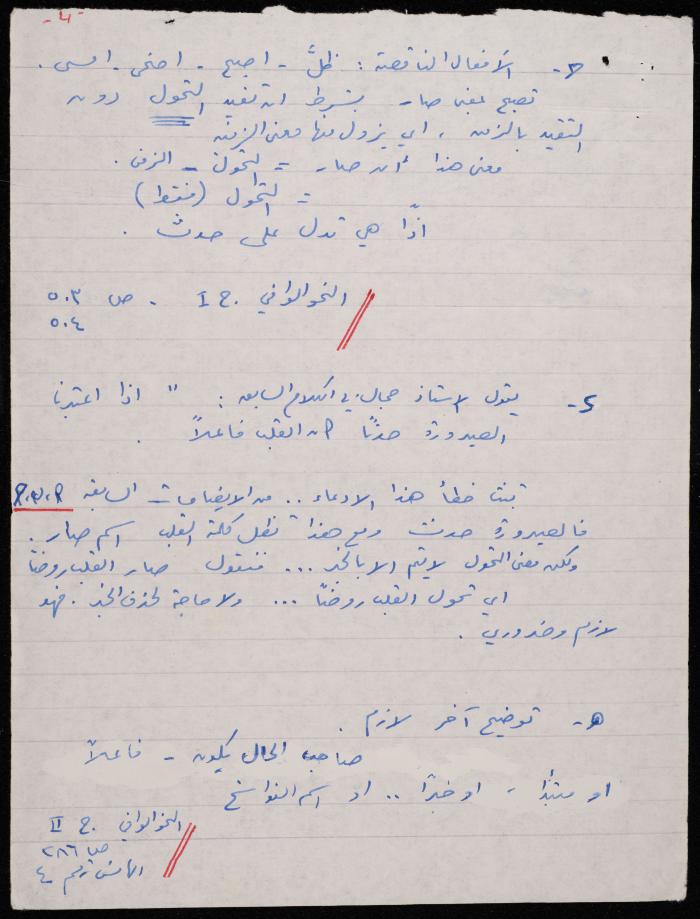 -٤-
٣- الأفعال الناقصة: ظلّ - اصبح - اضحى - امسى.
تصبح بمعنى صار بشرط ان تفيد التحول دون
التقيد بالزمن، اي يزول منها معنى الزمن
معنى هذا أن صار = التحول - الزمن.
= التحول (فقط)
اذًا هي تدل على حدث.
النحو الوافي ج I - ص ٥٠٣
٥٠٤
يقول الاستاذ جمال في الكلام السابق: " اذا اعتبرنا
الصيرورة حدثًا كان القلب فاعلاً.
خطأ هذا الادعاء.. من الايضاحات السابقة
فالصيرورة حدث ومع هذا تظل كلمة القلب اسم صار.
ولكن معنى التحول لا يتم الا بالخبر... فنقول صار القلب روضًا
اي تحول القلب روضًا... ولا حاجة لحذف الخبر. فهو
لازم وضروري.
توضيح آخر لازم.
صاحب الحال يكون - فاعلاً
او مبتدأ - او خبرًا.. او اسم النواسخ
النحو الوافي ج II
ص ٢٨٦
الهامش رقم ٤